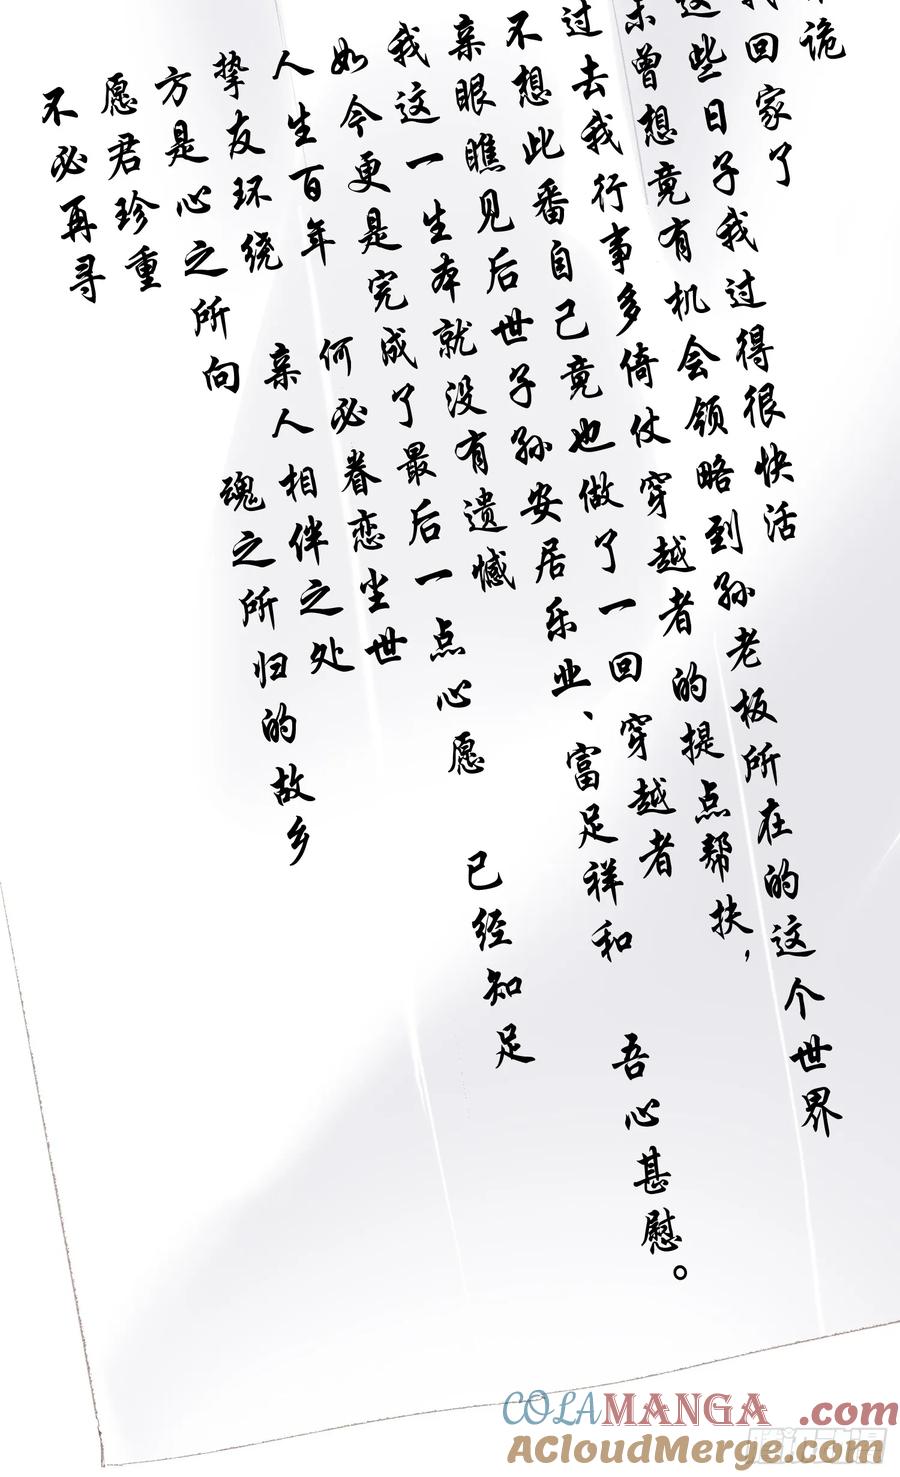 诡
我回家了
这些日子我过得很快活
未曾想竟有机会领略到孙老板所在的这个世界
过去我行事多倚仗穿越者的提点帮扶，
不想此番自己竟也做了一回穿越者
亲眼瞧见后世子孙安居乐业、富足祥和 吾心甚慰。
我这一生本就没有遗憾
如今更是完成了最后一点心愿 已经知足
人生百年 何必眷恋尘世
挚友环绕 亲人相伴之处
方是心之所向 魂之所归的故乡
愿君珍重
不必再寻
COLAMANGA.com
ACloudMerge.com